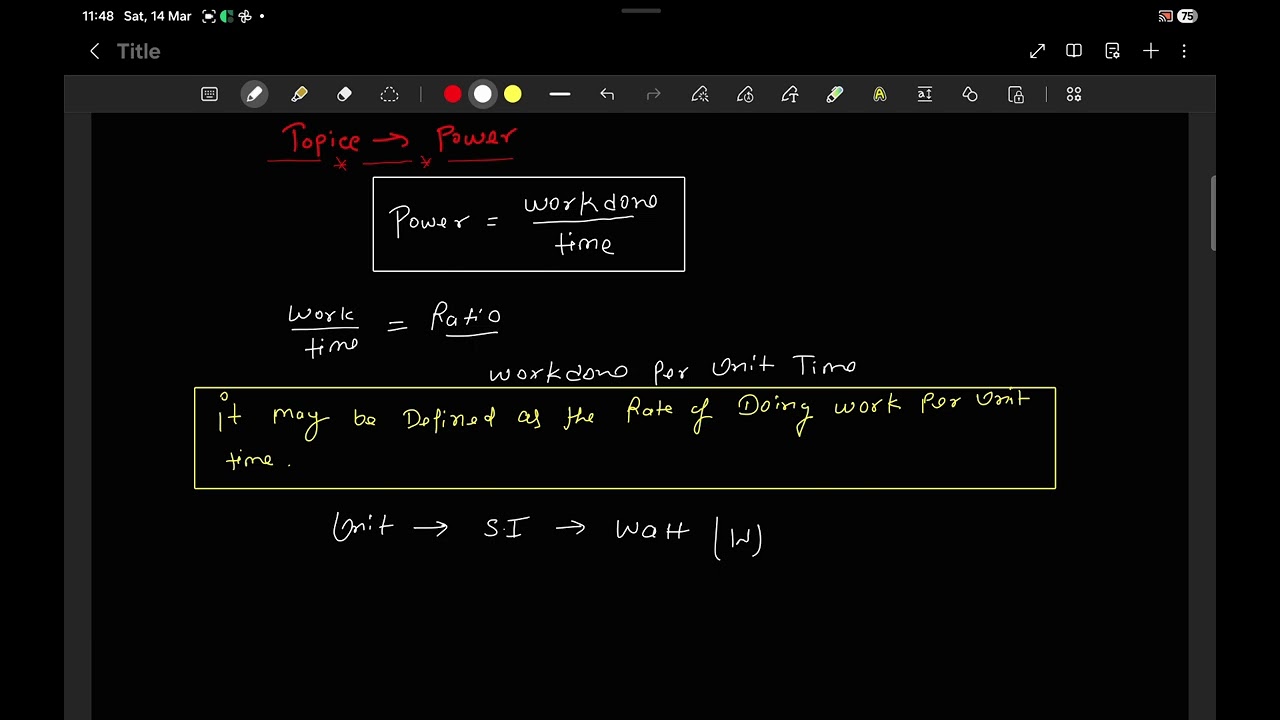 11:48 Sat, 14 Mar
75
Title
Topice → Power
Power = workdone
time
work
time
= Ratio
workdone Per Unit Time
it may be Defined as the Rate of Doing work Per Unit
time.
Unit → S.I → Watt (W)